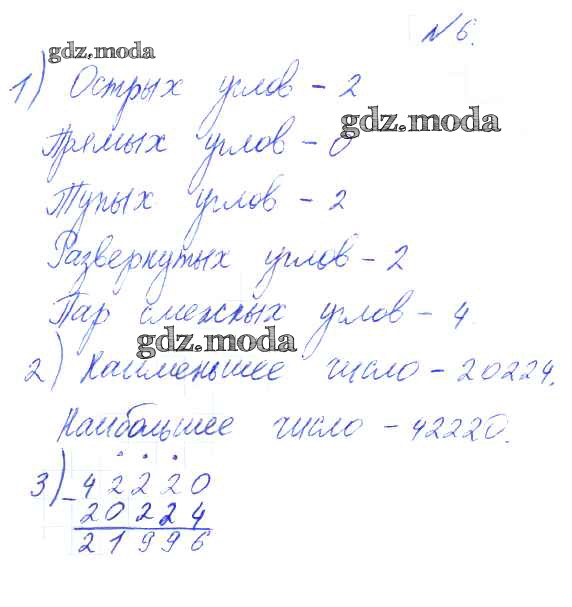 №6.
gdz.moda
1) Острых углов - 2
gdz.moda
Прямых углов - 0
Тупых углов - 2
Развернутых углов - 2
Пар смежных углов - 4
gdz.moda
2) Наименьшее число - 20224.
Наибольшее число - 42220.
3) - 42220
20224
21996